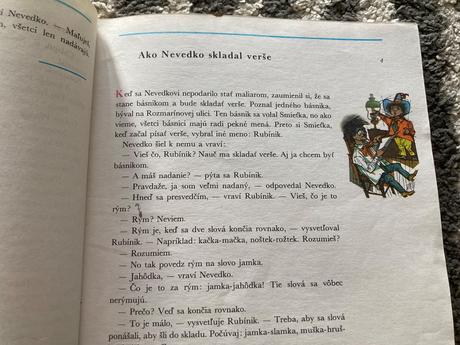 i Nevedko. — Maluješ,
m, všetci len nadávajú.
Ako Nevedko skladal verše
4
Keď sa Nevedkovi nepodarilo stať maliarom, zaumienil si, že sa
stane básnikom a bude skladať verše. Poznal jedného básnika,
býval na Rozmarínovej ulici. Ten básnik sa volal Smieťka, no ako
vieme, všetci básnici majú radi pekné mená. Preto si Smieťka,
keď začal písať verše, vybral iné meno: Rubínik.
Nevedko šiel k nemu a vraví:
— Vieš čo, Rubínik? Nauč ma skladať verše. Aj ja chcem byť
básnikom.
— A máš nadanie? — pýta sa Rubínik.
— Pravdaže, ja som veľmi nadaný, — odpovedal Nevedko.
— Hneď sa presvedčím, — vraví Rubínik. — Vieš, čo je to
rým?
— Rým? Neviem.
— Rým je, keď sa dve slová končia rovnako, — vysvetľoval
Rubínik. — Napríklad: kačka-mačka, noštek-rožtek. Rozumieš?
— Rozumiem.
— No tak povedz rým na slovo jamka.
— Jahôdka, — vraví Nevedko.
— Čo je to za rým: jamka-jahôdka! Tie slová sa vôbec
nerýmujú.
— Prečo? Veď sa končia rovnako.
— To je málo, — vysvetľuje Rubínik. — Treba, aby sa slová
ponášali, aby šli do skladu. Počúvaj: jamka-slamka, muška-hruš-